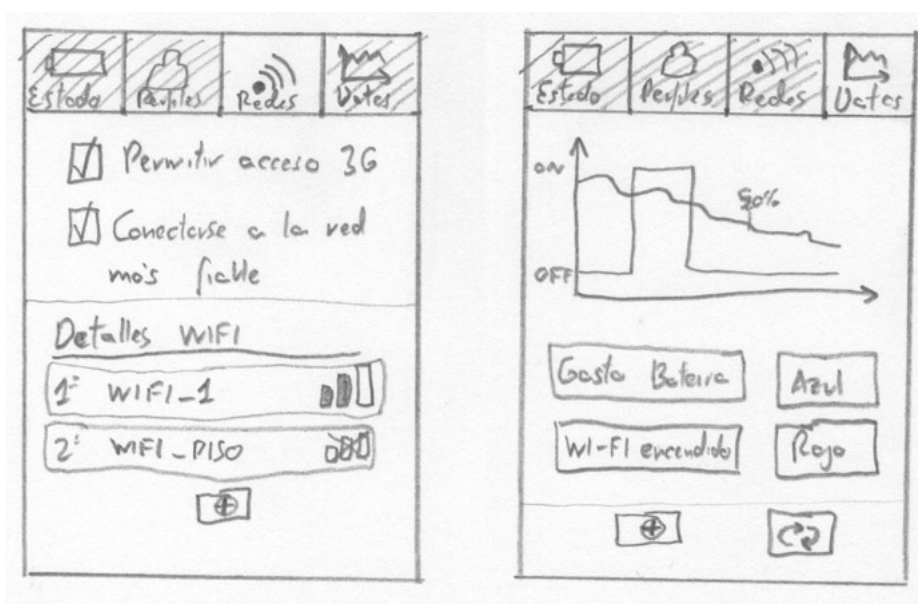 Estado Perfiles Redes Datos
Permitir acceso 3G
Conectarse a la red
más fiable
Detalles WIFI
1º WIFI_1
2º WIFI_PISO
Estado Perfiles Redes Datos
ON
50%
OFF
Gasto Batería Azul
WI-FI encendido Rojo